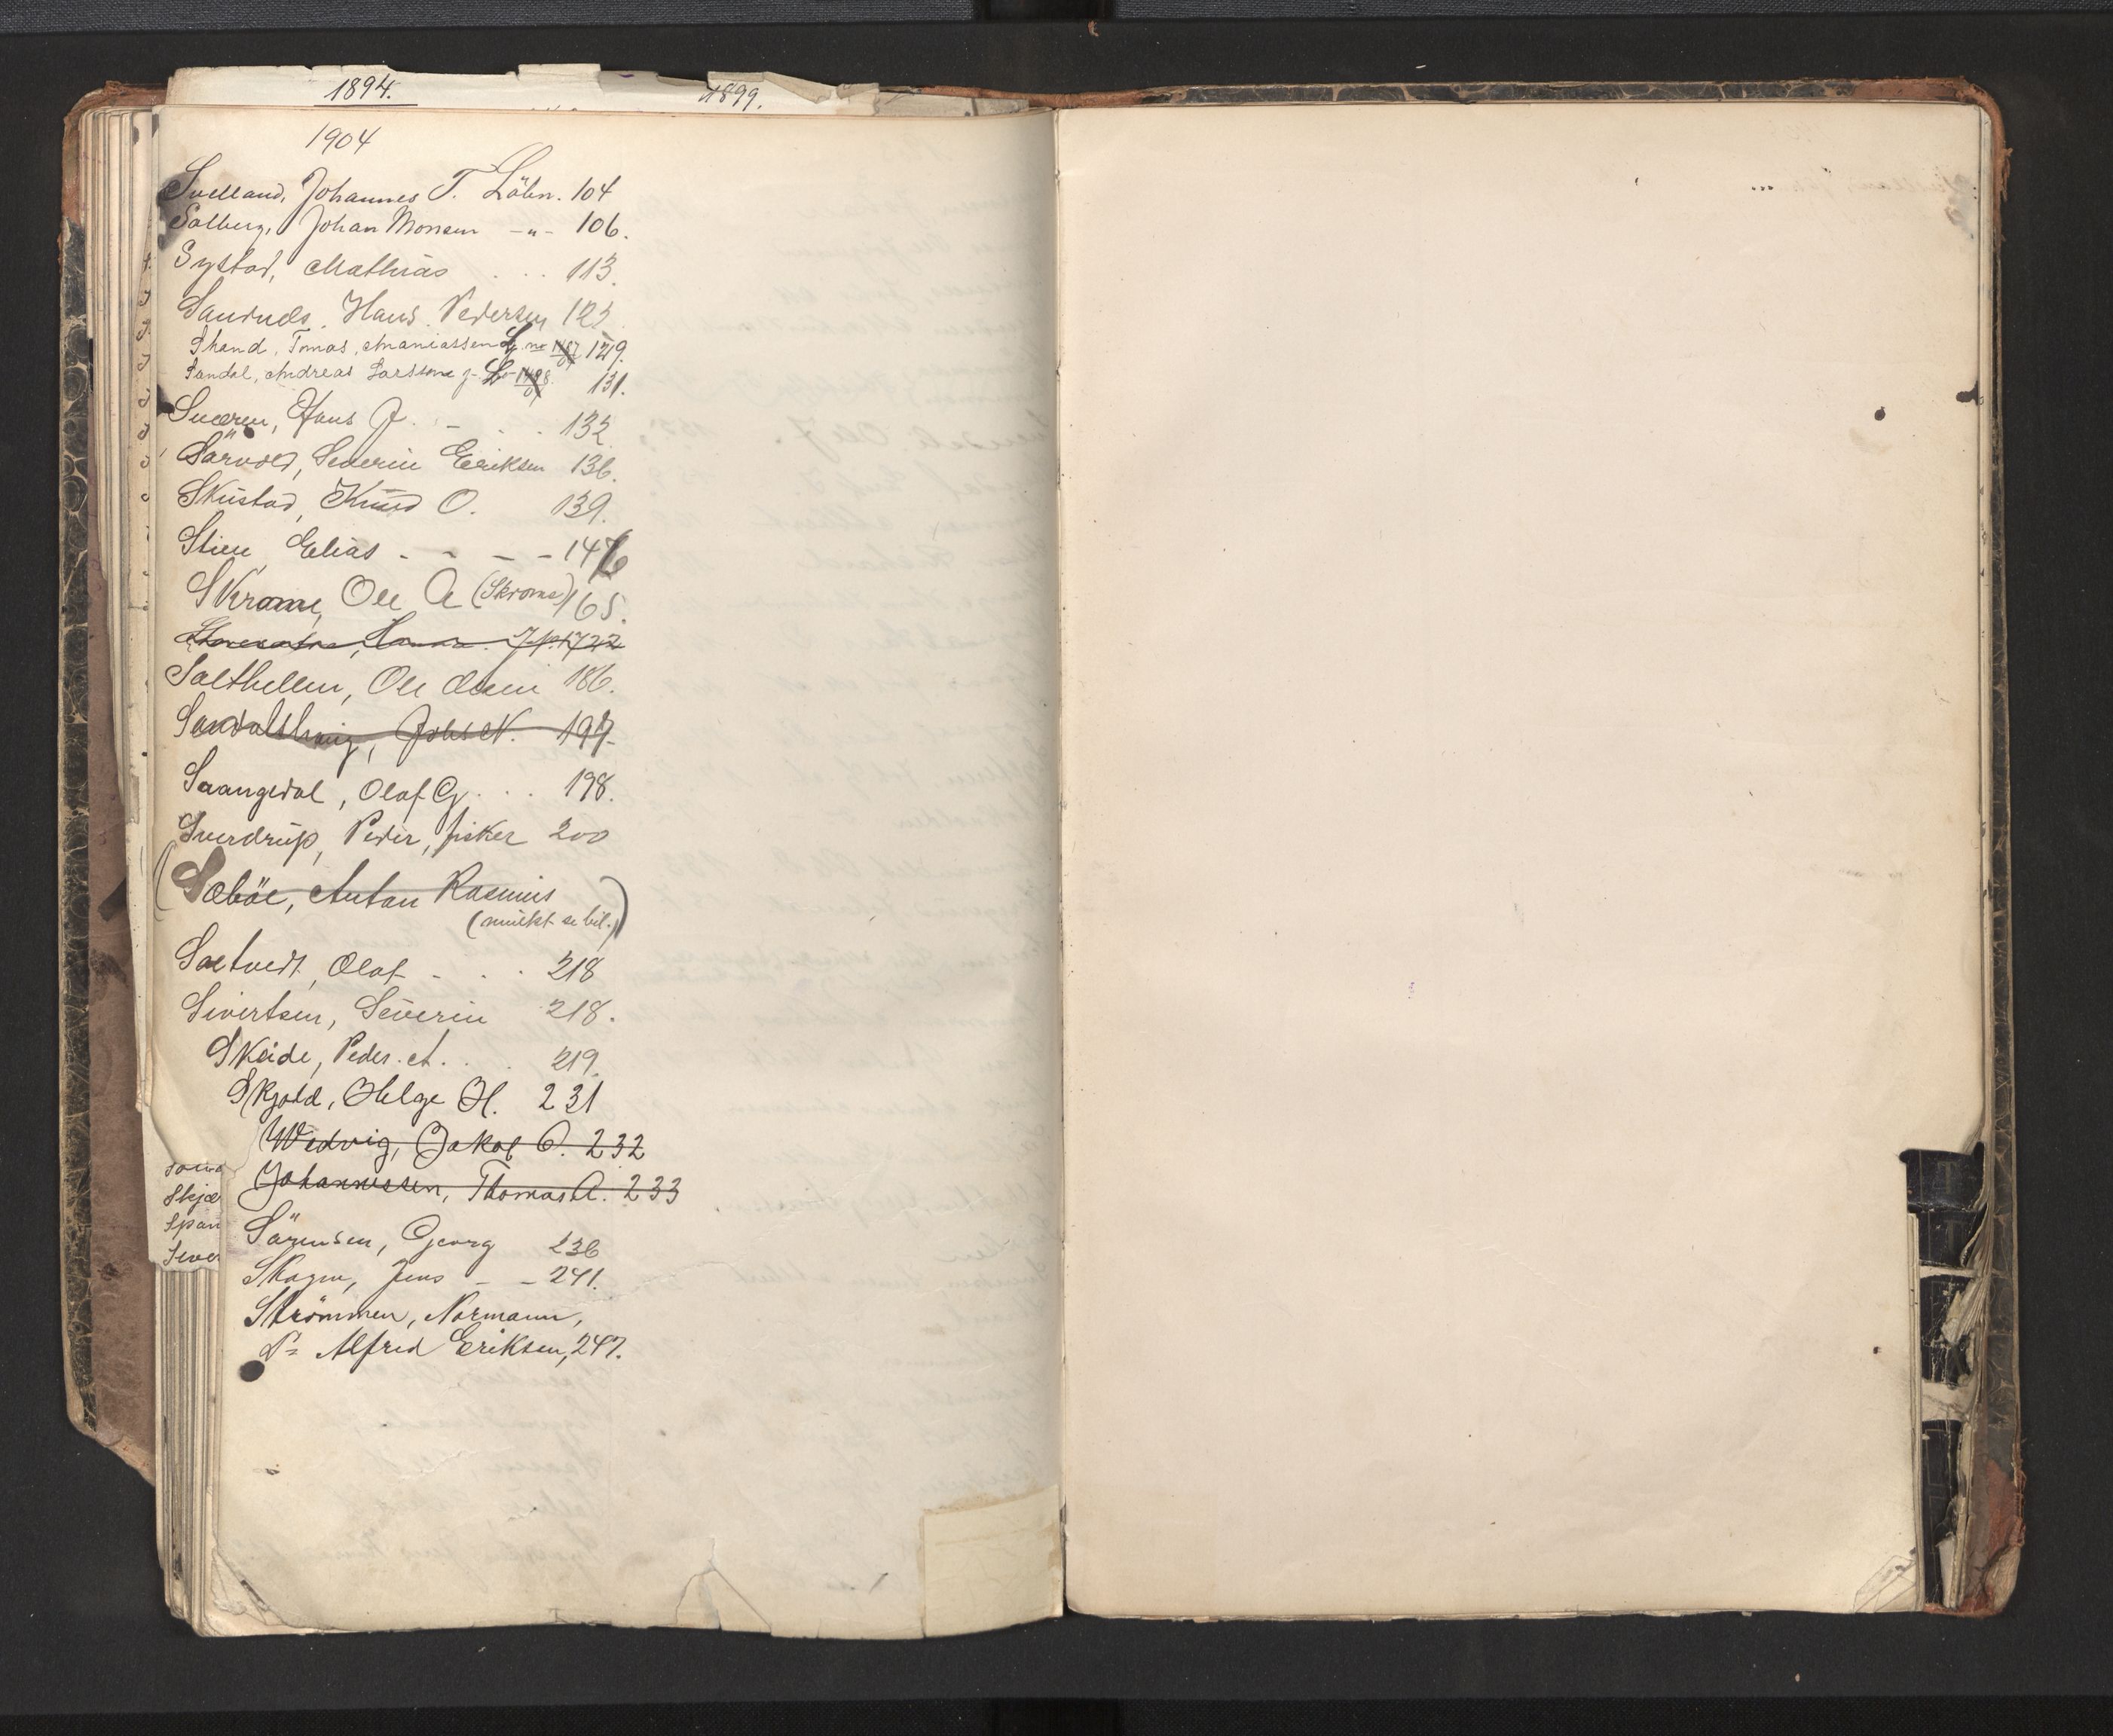 1894.
1899.
1904
Svelland, Johannes T. Löbn. 104
Solberg, Johan Monsen -"- 106.
Systad, Mathias . . . 113.
Sandnes, Hans Pedersen 123
Strand, Tomas, Ananiassen 129.
Sandal, Andreas Larssen 131.
Sværen, Hans J. - . . 132.
Sörvold, Severin Eriksen 136.
Skistad, Knud O. 139.
Stien, Elias - - - - 146
Skrome, Ole A (Skrome) 165.
Salthellen, Ole Olsen 186.
Sandalshaug, Johs N. 197.
Saangedal, Olaf G . . . 198.
Sverdrup, Peder, fisker 200
(Sæböe, Anton Rasmus
(mulkt se bil.))
Saetvedt, Olaf - . . 218
Sivertsen, Severin 218.
Skeide, Peder A. . . 219.
Skjold, Helge H. 231
Wedvig, Jakob O. 232
Johannessen, Thomas A. 233
Skjæ
Span
Siver
Sörensen, Georg 236
Skagen, Jens - - 241.
Strömmen, Normann,
Alfred Eriksen, 247.